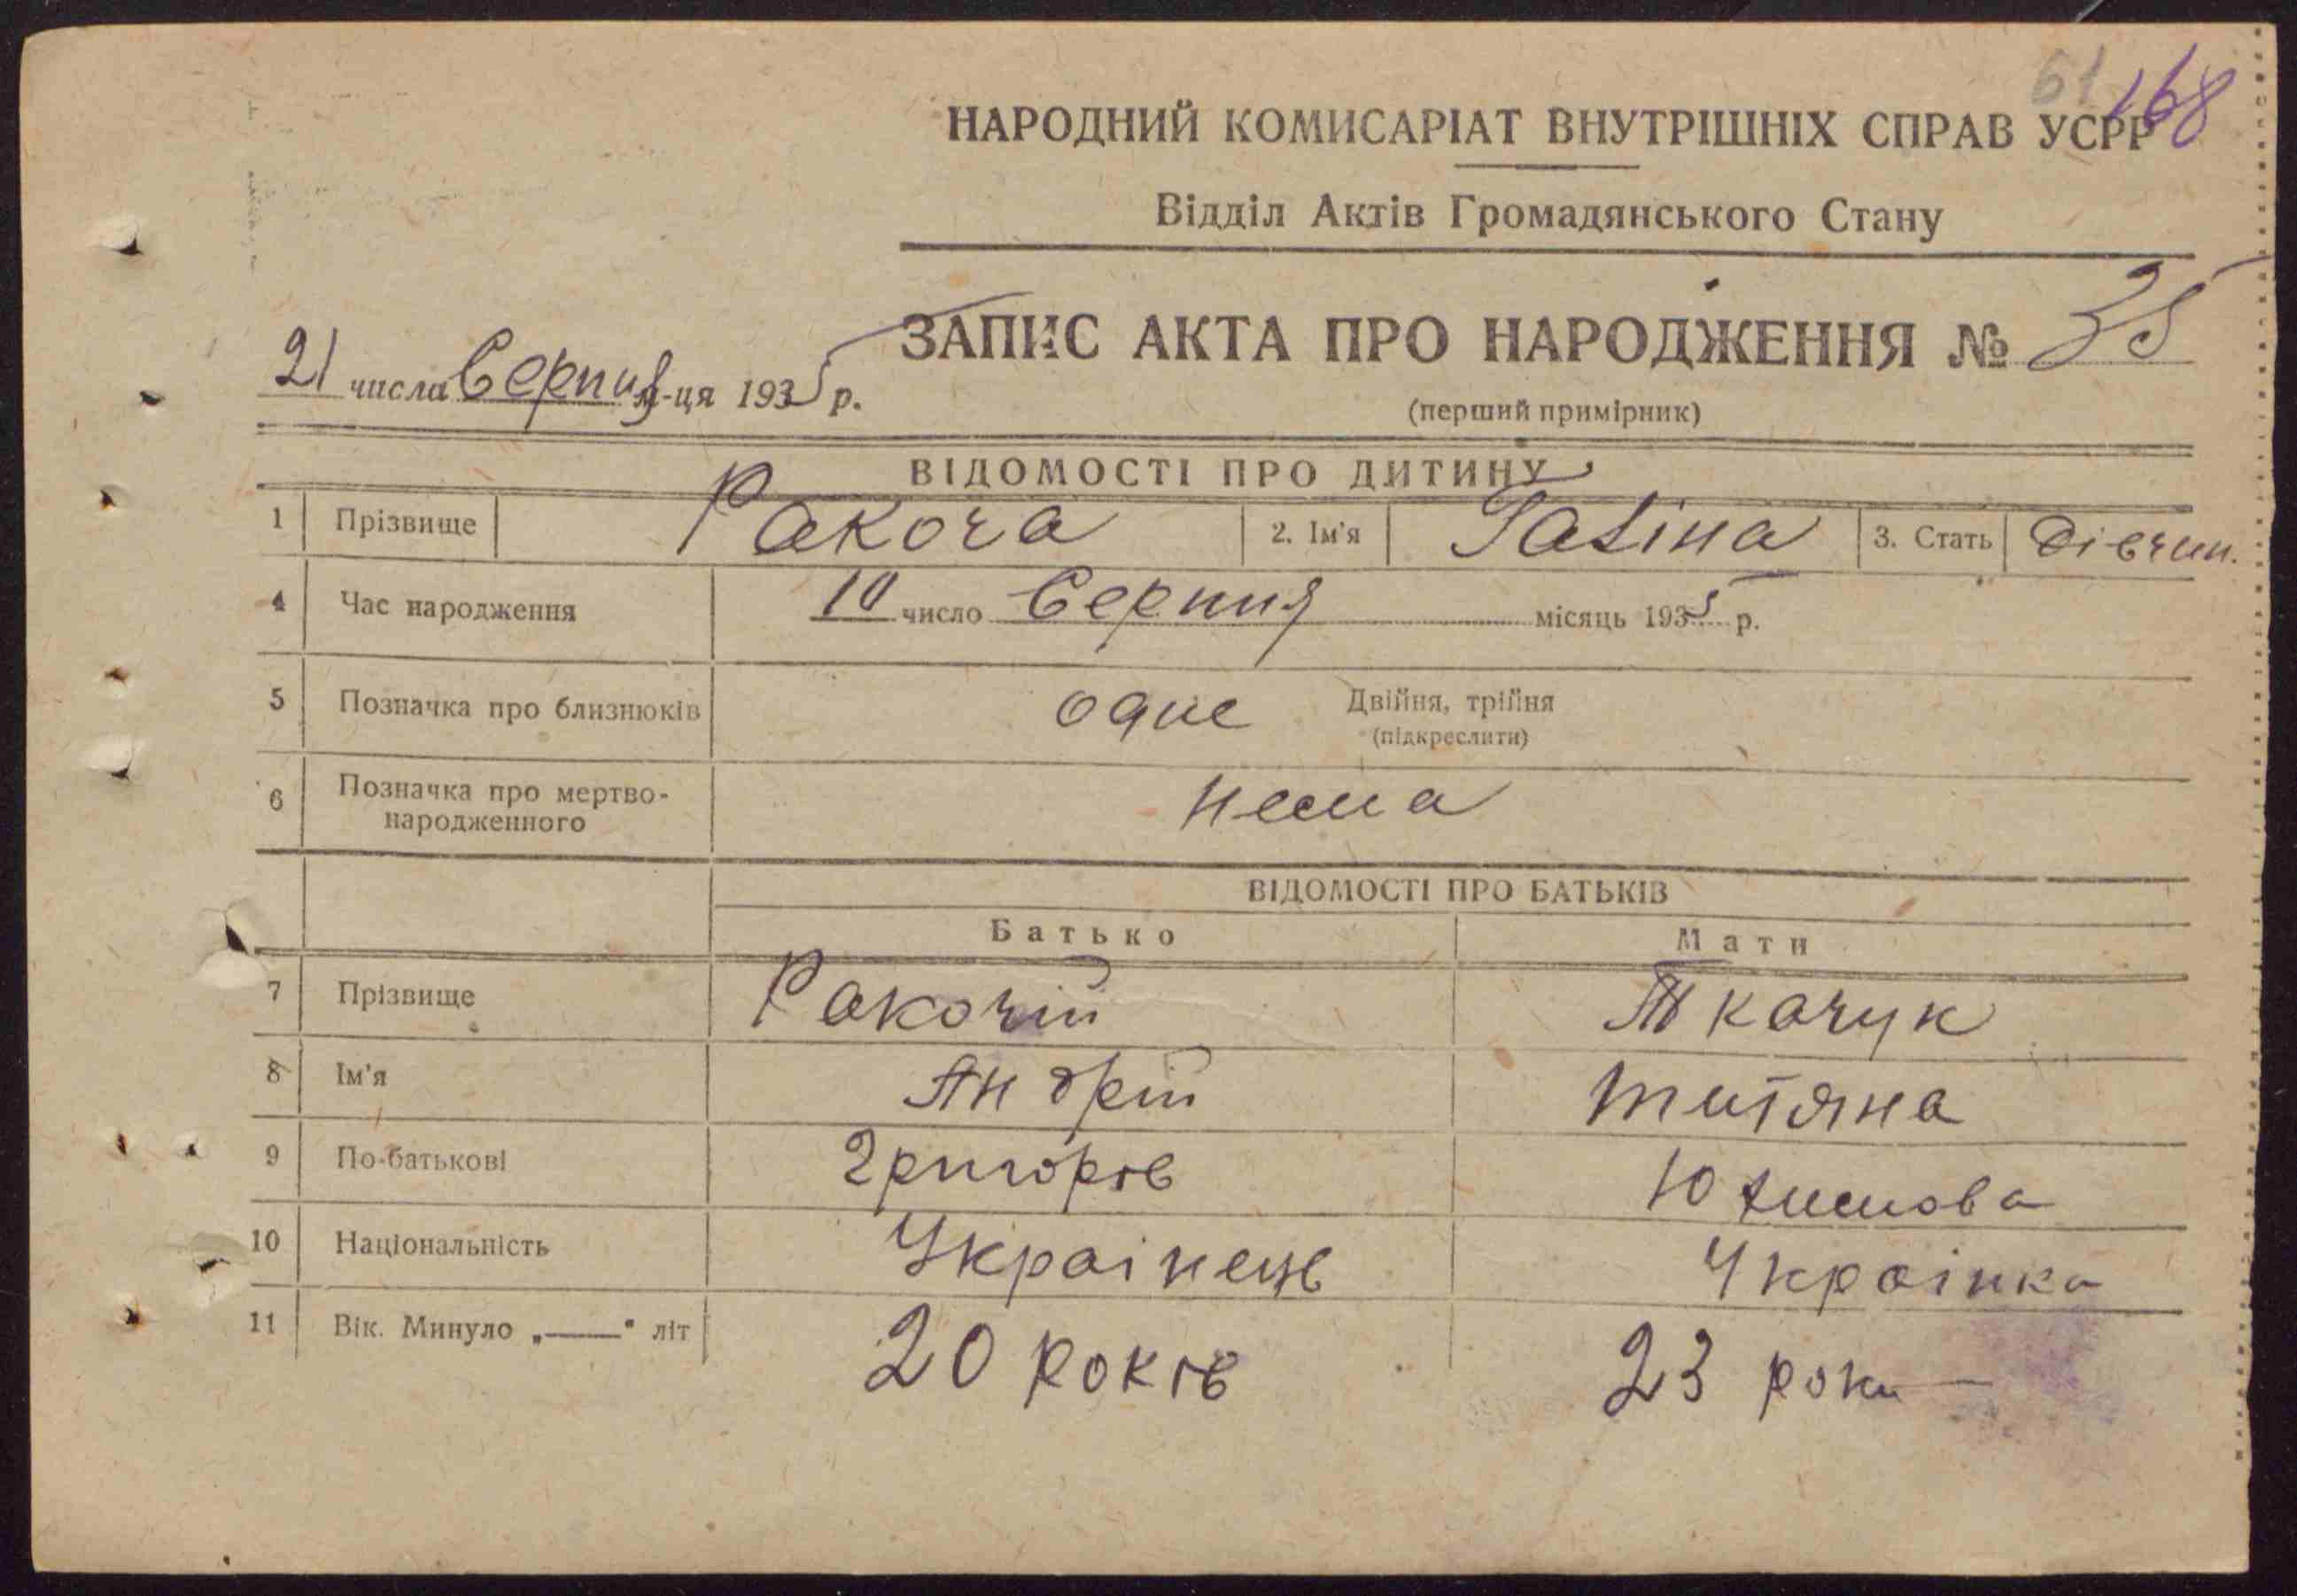 61 168
НАРОДНИЙ КОМИСАРІАТ ВНУТРІШНІХ СПРАВ УСРР
Відділ Актів Громадянського Стану
ЗАПИС АКТА ПРО НАРОДЖЕННЯ № 35
21 числа Серпня м-ця 1935 р.
(перший примірник)
ВІДОМОСТІ ПРО ДИТИНУ
1 Прізвище Ракоча 2. Ім'я Галіна 3. Стать Дівчин.
4 Час народження 10 число Серпня місяць 1935 р.
5 Позначка про близнюків одне Двійня, трійня
(підкреслити)
6 Позначка про мертво-
народженного нема
ВІДОМОСТІ ПРО БАТЬКІВ
Батько Мати
7 Прізвище Ракочій Ткачук
8 Ім'я Андрій Титяна
9 По-батькові Григорів Юхимова
10 Національність Украінець Украінка
11 Вік. Минуло „——" літ 20 років 23 роки